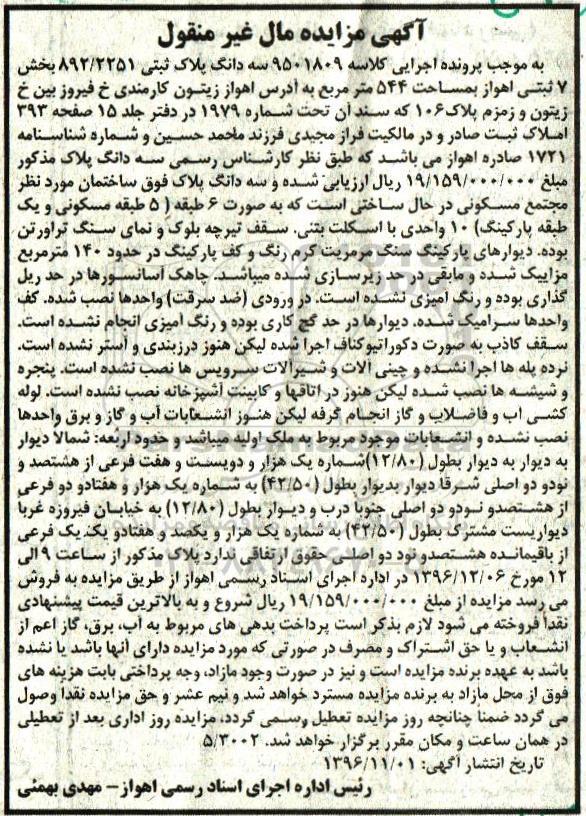 آگهی مزایده مال غیر منقول
به موجب پرونده اجرایی کلاسه ۹۵۰۱۸۰۹ سه دانگ پلاک ثبتی ۸۹۲/۲۲۵۱ بخش
۷ ثبتی اهواز بمساحت ۵۴۴ متر مربع به آدرس اهواز زیتون کارمندی خ فیروز بین خ
زیتون و زمزم پلاک۱۰۶ که سند آن تحت شماره ۱۹۷۹ در دفتر جلد ۱۵ صفحه ۳۹۳
املاک ثبت صادر و در مالکیت فراز مجیدی فرزند محمد حسین و شماره شناسنامه
۱۷۲۱ صادره اهواز می باشد که طبق نظر کارشناس رسمی سه دانگ پلاک مذکور
مبلغ ۱۹/۱۵۹/۰۰۰/۰۰۰ ریال ارزیابی شده و سه دانگ پلاک فوق ساختمان مورد نظر
مجتمع مسکونی در حال ساختی است که به صورت ۶ طبقه ( ۵ طبقه مسکونی و یک
طبقه پارکینگ) ۱۰ واحدی با اسکلت بتنی، سقف تیرچه بلوک و نمای سنگ تراورتن
بوده. دیوارهای پارکینگ سنگ مرمریت کرم رنگ و کف پارکینگ در حدود ۱۴۰ مترمربع
مزاییک شده و مابقی در حد زیرسازی شده میباشد. چاهک آسانسورها در حد ریل
گذاری بوده و رنگ آمیزی نشده است. در ورودی (ضد سرقت) واحدها نصب شده. کف
واحدها سرامیک شده. دیوارها در حد گچ کاری بوده و رنگ آمیزی انجام نشده است.
سقف کاذب به صورت دکوراتیوکناف اجرا شده لیکن هنوز درزبندی و آستر نشده است.
نرده پله ها اجرا نشده و چینی آلات و شیرآلات سرویس ها نصب نشده است. پنجره
و شیشه ها نصب شده لیکن هنوز در اتاقها و کابینت آشپزخانه نصب نشده است. لوله
کشی آب و فاضلاب و گاز انجام گرفه لیکن هنوز انشعابات آب و گاز و برق واحدها
نصب نشده و انشعابات موجود مربوط به ملک اولیه میباشد و حدود اربعه: شمالا دیوار
به دیوار به دیوار بطول (۱۲/۸۰)شماره یک هزار و دویست و هفت فرعی از هشتصد و
نودو دو اصلی شرقا دیوار بدیوار بطول (۴۲/۵۰) به شماره یک هزار و هفتادو دو فرعی
از هشتصدو نودو دو اصلی جنوبا درب و دیوار بطول (۱۲/۸۰) به خیابان فیروزه غربا
دیواریست مشترک بطول (۴۲/۵۰) به شماره یک هزار و یکصد و هفتادو یک‌یک فرعی
از باقیمانده هشتصدو نود دو اصلی حقوق ارتفاقی ندارد پلاک مذکور از ساعت ۹ الی
۱۲ مورخ ۱۳۹۶/۱۲/۰۶ در اداره اجرای اسناد رسمی اهواز از طریق مزایده به فروش
می رسد مزایده از مبلغ ۱۹/۱۵۹/۰۰۰/۰۰۰ ریال شروع و به بالاترین قیمت پیشنهادی
نقدا فروخته می شود لازم بذکر است پرداخت بدهی های مربوط به آب، برق، گاز اعم از
انشعاب و یا حق اشتراک و مصرف در صورتی که مورد مزایده دارای آنها باشد یا نشده
باشد به عهده برنده مزایده است و نیز در صورت وجود مازاد، وجه پرداختی بابت هزینه های
فوق از محل مازاد به برنده مزایده مسترد خواهد شد و نیم عشر و حق مزایده نقدا وصول
می گردد ضمنا چنانچه روز مزایده تعطیل رسمی گردد، مزایده روز اداری بعد از تعطیلی
در همان ساعت و مکان مقرر برگزار خواهد شد. ۵/۳۰۰۲
تاریخ انتشار آگهی: ۱۳۹۶/۱۱/۰۱
رئیس اداره اجرای اسناد رسمی اهواز– مهدی بهمنی